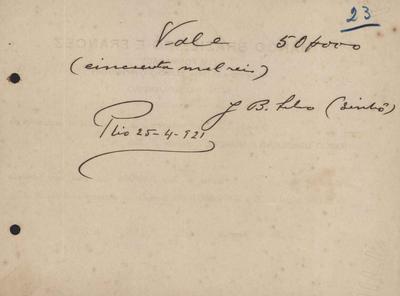 23
Vale 50$000
(cincoenta mil reis)
J B. Silva (Sinhô)
Rio 25-4-921